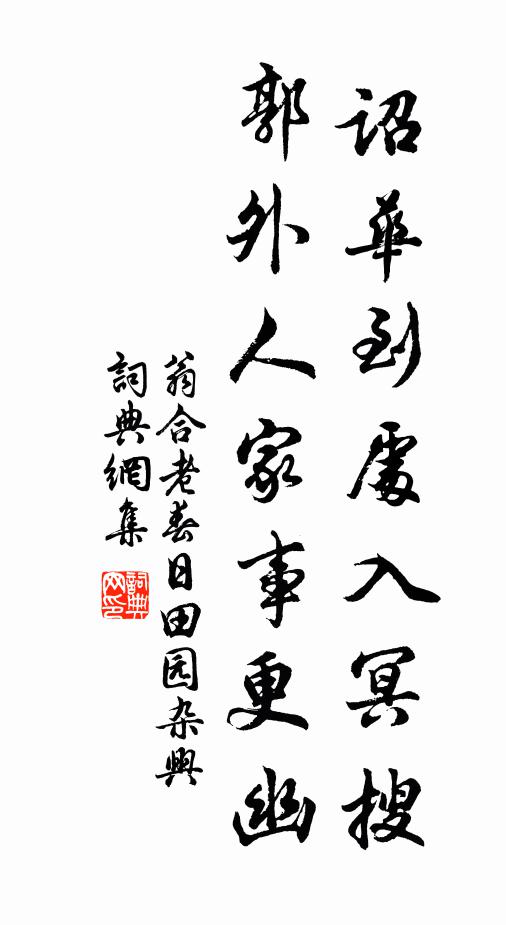 詔華到處入冥搜
郭外人家事更幽
翁合老春日田园杂興
詞典網集
詞典网印